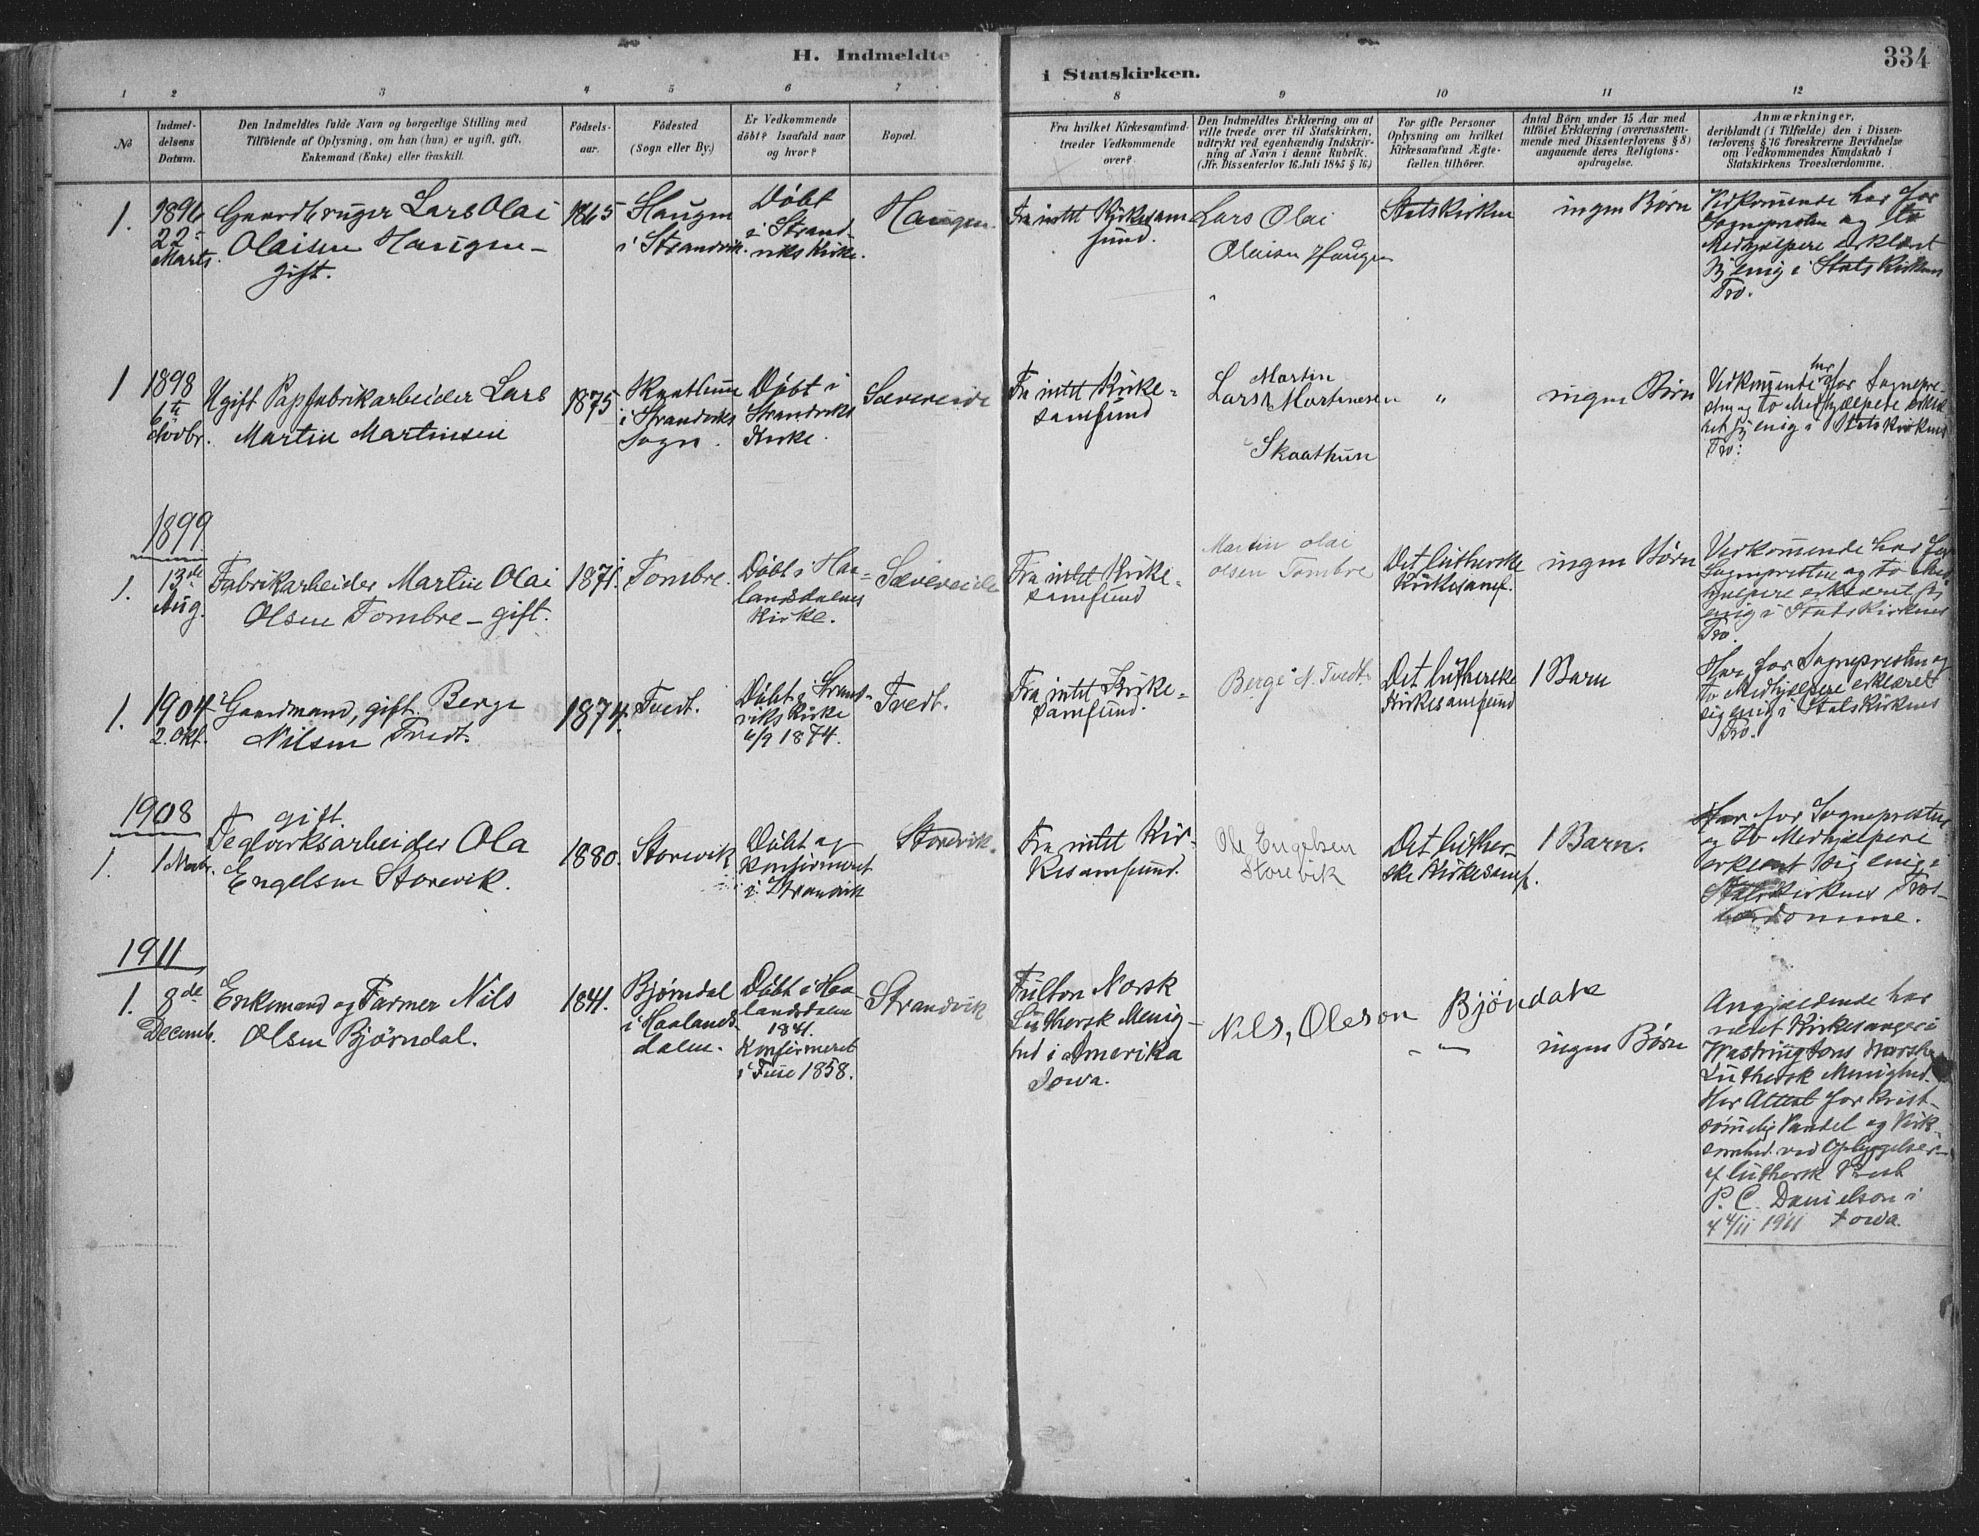 H. Indmeldte
i Statskirken.
334
1 2 3 4 5 6 7 8 9 10 11 12
No
Indmel-
delsens
Datum.
Den Indmeldtes fulde Navn og borgerlige Stilling med
Tilföiende af Oplysning, om han (hun) er ugift, gift,
Enkemand (Enke) eller fraskilt.
Födsels-
aar.
Födested
(Sogn eller By.)
Er Vedkommende
döbt? Isaafald naar
og hvor?
Bopæl.
Fra hvilket Kirkesamfund
træder Vedkommende
over?
Den Indmeldtes Erklæring om at
ville træde over til Statskirken,
udtrykt ved egenhændig Indskriv-
ning af Navn i denne Rubrik.
(Jfr. Dissenterlov 16 Juli 1845 § 16.)
For gifte Personer
Oplysning om hvilket
Kirkesamfund Ægte-
fællen tilhörer.
Antal Börn under 15 Aar med
tilföiet Erklæring (overensstem-
mende med Dissenterlovens § 8)
angaaende deres Religions-
opdragelse.
Anmærkninger,
deriblandt (i Tilfælde) den i Dissen-
terlovens § 16 foreskrevne Bevidnelse
om Vedkommendes Kundskab i
Statskirkens Troeslærdomme.
1.
1896
22
Marts.
Gaardbruger Lars Olai
Olaisen Haugen –
gift.
1865
Haugen
i Strandvik.
Döbt
i Strand-
viks Kirke.
Haugen.
Fra intet Kirkesam
fund.
Lars Olai
Olaisen Haugen
Statskirken
ingen Børn
Vedkommende har for
Sognepresten og to
Medhjælpere erklæret
sig enig i Statskirkens
Tro.
1
1898
6te
Novbr.
Ugift Papfabrikarbeider Lars
Martin Martinsen
1875
Skaathun
i Strandviks
Sogn.
Döbt i
Strandviks
Kirke.
Sævereide
Fra intet Kirke-
samfund
Martin
Lars Martinesen
Skaathun
"
ingen Børn
har
Vedkommende for Sognepre-
sten og to Medhjælpere erklæ-
ret sig enig i Statskirkens
Tro.
1899
1.
13de
Aug.
Fabrikarbeider Martin Olai
Olsen Tombre – gift.
1871.
Tombre.
Döbt i Haa-
landsdalens
Kirke.
Sævereide
Fra intet Kirke-
samfund
Martin olai
olsen Tombre
Det lutherske
Kirkesamf.
ingen Børn
Vedkommende har for
Sognepresten og to Med-
hjælpere erklæret sig
enig i Statskirkens
Tro.
1.
1904
2. Okt.
Gaardmand, gift. Berge
Nilsen Tvedt.
1874.
Tvedt.
Döbt i Strand-
viks Kirke
6/9 1874.
Tvedt.
Fra intet Kirke-
samfund.
Berge N. Tvedt.
Det lutherske
Kirkesamfund
1 Barn
Har for Sognepresten og
to Medhjælpere erklæret
sig enig i Statskirkens
Tro.
1908
1.
1 Novbr.
gift.
Teglverksarbeider Ola
Engelsen Storevik.
1880.
Storevik
Döbt og
konfirmeret
i Strandvik
Storevik.
Fra intet Kir-
kesamfund.
Ole Engelsen
Storevik
Det luther-
ske Kirkesamf.
1 Barn.
Har for Sognepresten
og to Medhjælpere
erklæret sig enig i
Statskirkens Tros-
lærdomme.
1911
1.
8de
Decemb.
Enkemand og Farmer Nils
Olsen Bjørndal.
1841.
Bjørndal
i Haalands-
dalen.
Döbt i Haa-
landsdalen
1841.
Konfirmeret
i Fuse 1858.
Strandvik
Norsk
Luthersk Menig-
hed i Amerika
Iowa.
Nils, Oleson Bjöndale
– " –
ingen Børn
Angjældende har
været Kirkesanger i
Washingtons Norske
Lutherske Menighed.
Har Attest for krist-
sömmelig Vandel og Virk-
somhed ved
af luthersk Prest
P. C. Danielson i
4/11 1911 Iowa.